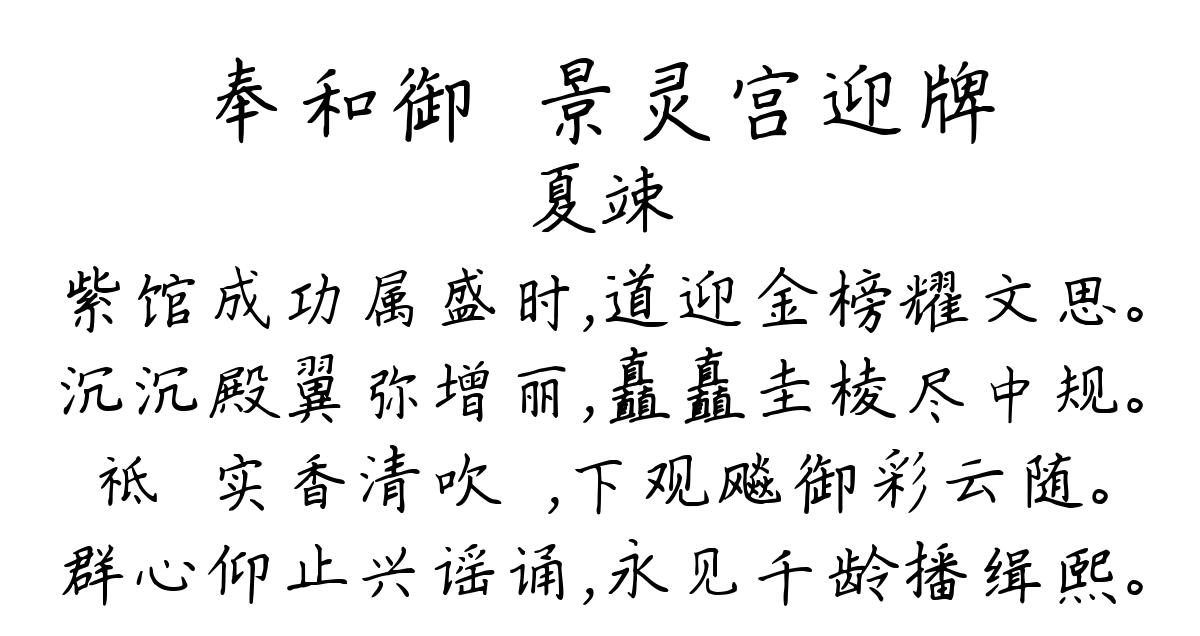 奉和御 景灵宫迎牌
夏竦
紫馆成功属盛时,道迎金榜耀文思。
沉沉殿翼弥增丽,矗矗圭棱尽中规。
祗 实香清吹 ,下观飚御彩云随。
群心仰止兴谣诵,永见千龄播缉熙。